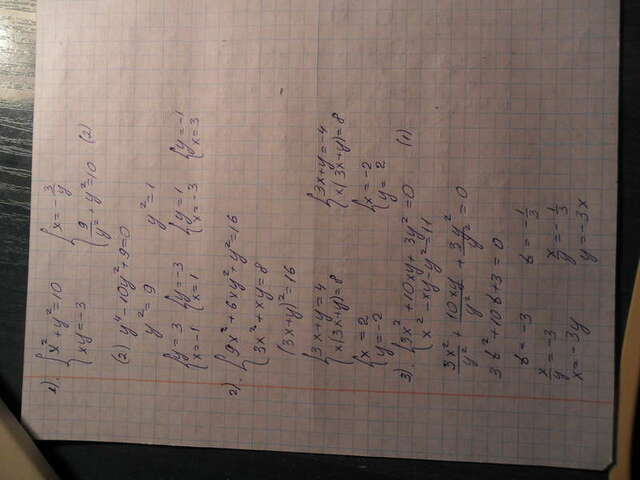 1). { x² + y² = 10 { x = -3/y
{ xy = -3 { 9/y² + y² = 10 (2)
(2) y⁴ - 10y² + 9 = 0
y² = 9 y² = 1
{ y = 3 { y = -3 { y = 1 { y = -1
{ x = -1 { x = 1 { x = -3 { x = 3
2). { 9x² + 6xy + y² = 16
{ 3x² + xy = 8
(3x+y)² = 16
{ 3x+y = 4 { 3x+y = -4
{ x(3x+y) = 8 { x(3x+y) = 8
{ x = 2 { x = -2
{ y = -2 { y = 2
3). { 3x² + 10xy + 3y² = 0 (1)
{ x² - xy - y² = 11
3x²/y² + 10xy/y² + 3y²/y² = 0
3b² + 10b + 3 = 0
b = -3 b = -1/3
x/y = -3 x/y = -1/3
x = -3y y = -3x